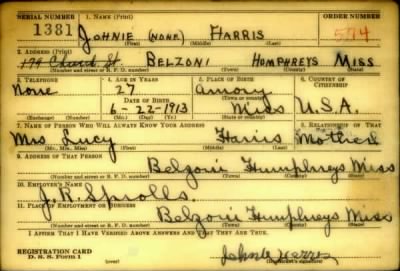 SERIAL NUMBER 1. NAME (Print) ORDER NUMBER
1381 JOHNIE (NONE) HARRIS 574
(First) (Middle) (Last)
2. ADDRESS (Print)
179 Church St. BELZONI HUMPHREYS MISS
(Number and street or R. F. D. number) (Town) (County) (State)
3. TELEPHONE 4. AGE IN YEARS 5. PLACE OF BIRTH 6. COUNTRY OF CITIZENSHIP
None 27 Amory
DATE OF BIRTH
6-22-1913 Miss U.S.A.
(Exchange) (Number) (Mo.) (Day) (Yr.) (State or country)
7. NAME OF PERSON WHO WILL ALWAYS KNOW YOUR ADDRESS 8. RELATIONSHIP OF THAT PERSON
Mrs Lucy Harris Mother
(Mr., Mrs., Miss) (First) (Middle) (Last)
9. ADDRESS OF THAT PERSON
Belzoni Humphreys Miss
(Number and street or R. F. D. number) (Town) (County) (State)
10. EMPLOYER'S NAME
J. R.
11. PLACE OF EMPLOYMENT OR BUSINESS
Belzoni Humphreys Miss
(Number and street or R. F. D. number) (Town) (County) (State)
I AFFIRM THAT I HAVE VERIFIED ABOVE ANSWERS AND THAT THEY ARE TRUE.
REGISTRATION CARD
D. S. S. Form 1 (over) Johnie Harris
(Registrant's signature)